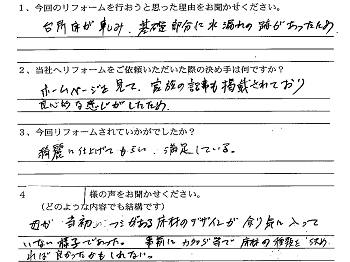 1、今回のリフォームを行おうと思った理由をお聞かせください。
台所床が軋み、基礎部分に水漏れの跡があったため
2、当社へリフォームをご依頼いただいた際の決め手は何ですか？
ホームページを見て、家族の記事も掲載されており
良心的な感じがしたため。
3、今回リフォームされていかがでしたか？
綺麗に仕上げてもらい、満足している。
4 様の声をお聞かせください。
（どのような内容でも結構です）
母が当初、フシがある床材のデザインが余り気に入って
いない様子であった。事前にカタログ等で床材の種類を決め
れば良かったかもしれない。